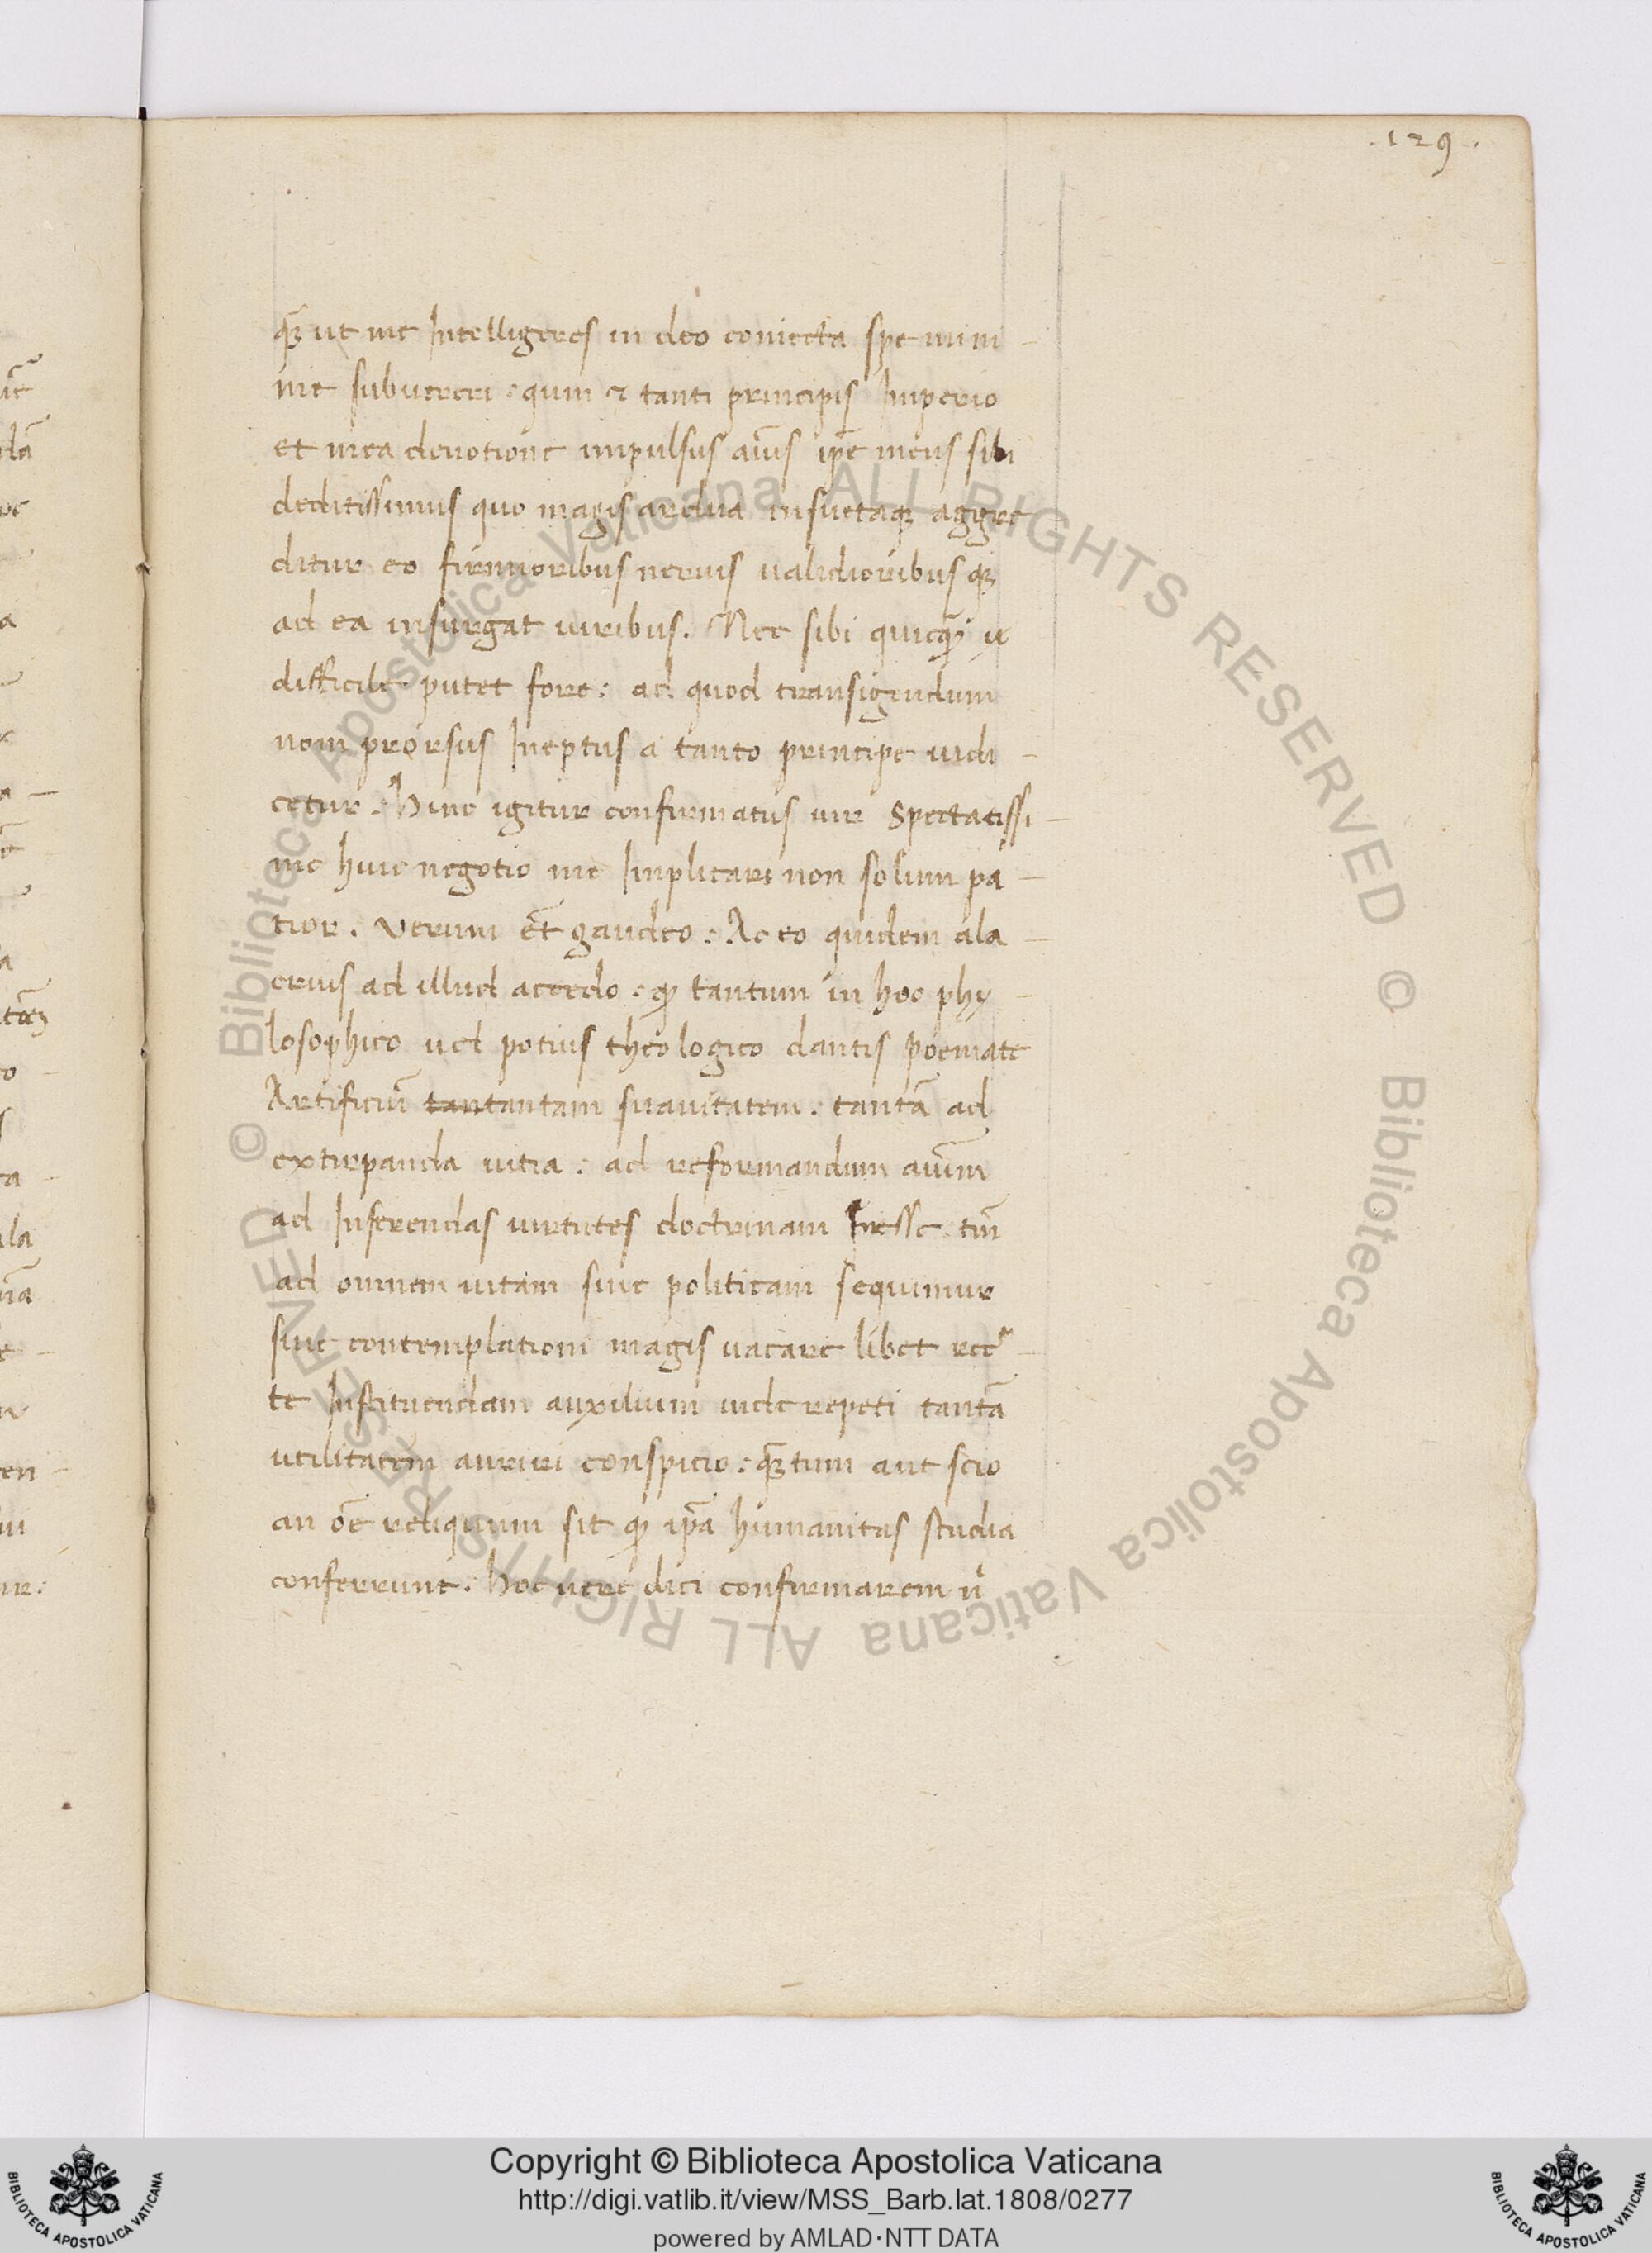 .129.
qꝫ ut me Intelligeres in deo coniecta spe mini-
me subuereri: qum & tanti principis Imperio
et mea deuotione impulsus aīus ip̄e meus sibi
deditissimus quo magis ardua insuetaqꝫ aggre
ditur eo firmioribus neruis ualidioribusqꝫ
ad ea insurgat uiribus. Nec sibi quicq̄
difficile putet fore: ad quod transigendum
nom prorsus Ineptus a tanto principe iudi-
cetur. Hinc igitur confirmatus uir Spectatissi-
me huic negotio me Implicari non solum pa-
tior. Verum ēt gaudeo: Ac eo quidem ala-
crius ad illud accedo: qꝫ tantum in hoc phy-
losophico uel potius theologico dantis poemate
Artificiū tantantam suauitatem: tantā ad
extirpanda uitia: ad reformandum aīum
ad Inferendas uirtutes doctrinam Inesse: tm̄
ad omnem uitam siue politicam sequimur
siue contemplationi magis uacare libet rec-
te Instituendam auxilium inde repeti tantā
utilitatem auriri conspicio: qꝫtum aut scio
an oē reliquum sit qꝫ ip̄a humanitas studia
conferrunt. Hoc uere dici confirmarem
© Biblioteca Apostolica Vaticana ALL RIGHTS RESERVED © Biblioteca Apostolica Vaticana ALL RIGHTS RESERVED
Copyright © Biblioteca Apostolica Vaticana
http://digi.vatlib.it/view/MSS_Barb.lat.1808/0277
powered by AMLAD·NTT DATA
BIBLIOTECA APOSTOLICA VATICANA
BIBLIOTECA APOSTOLICA VATICANA